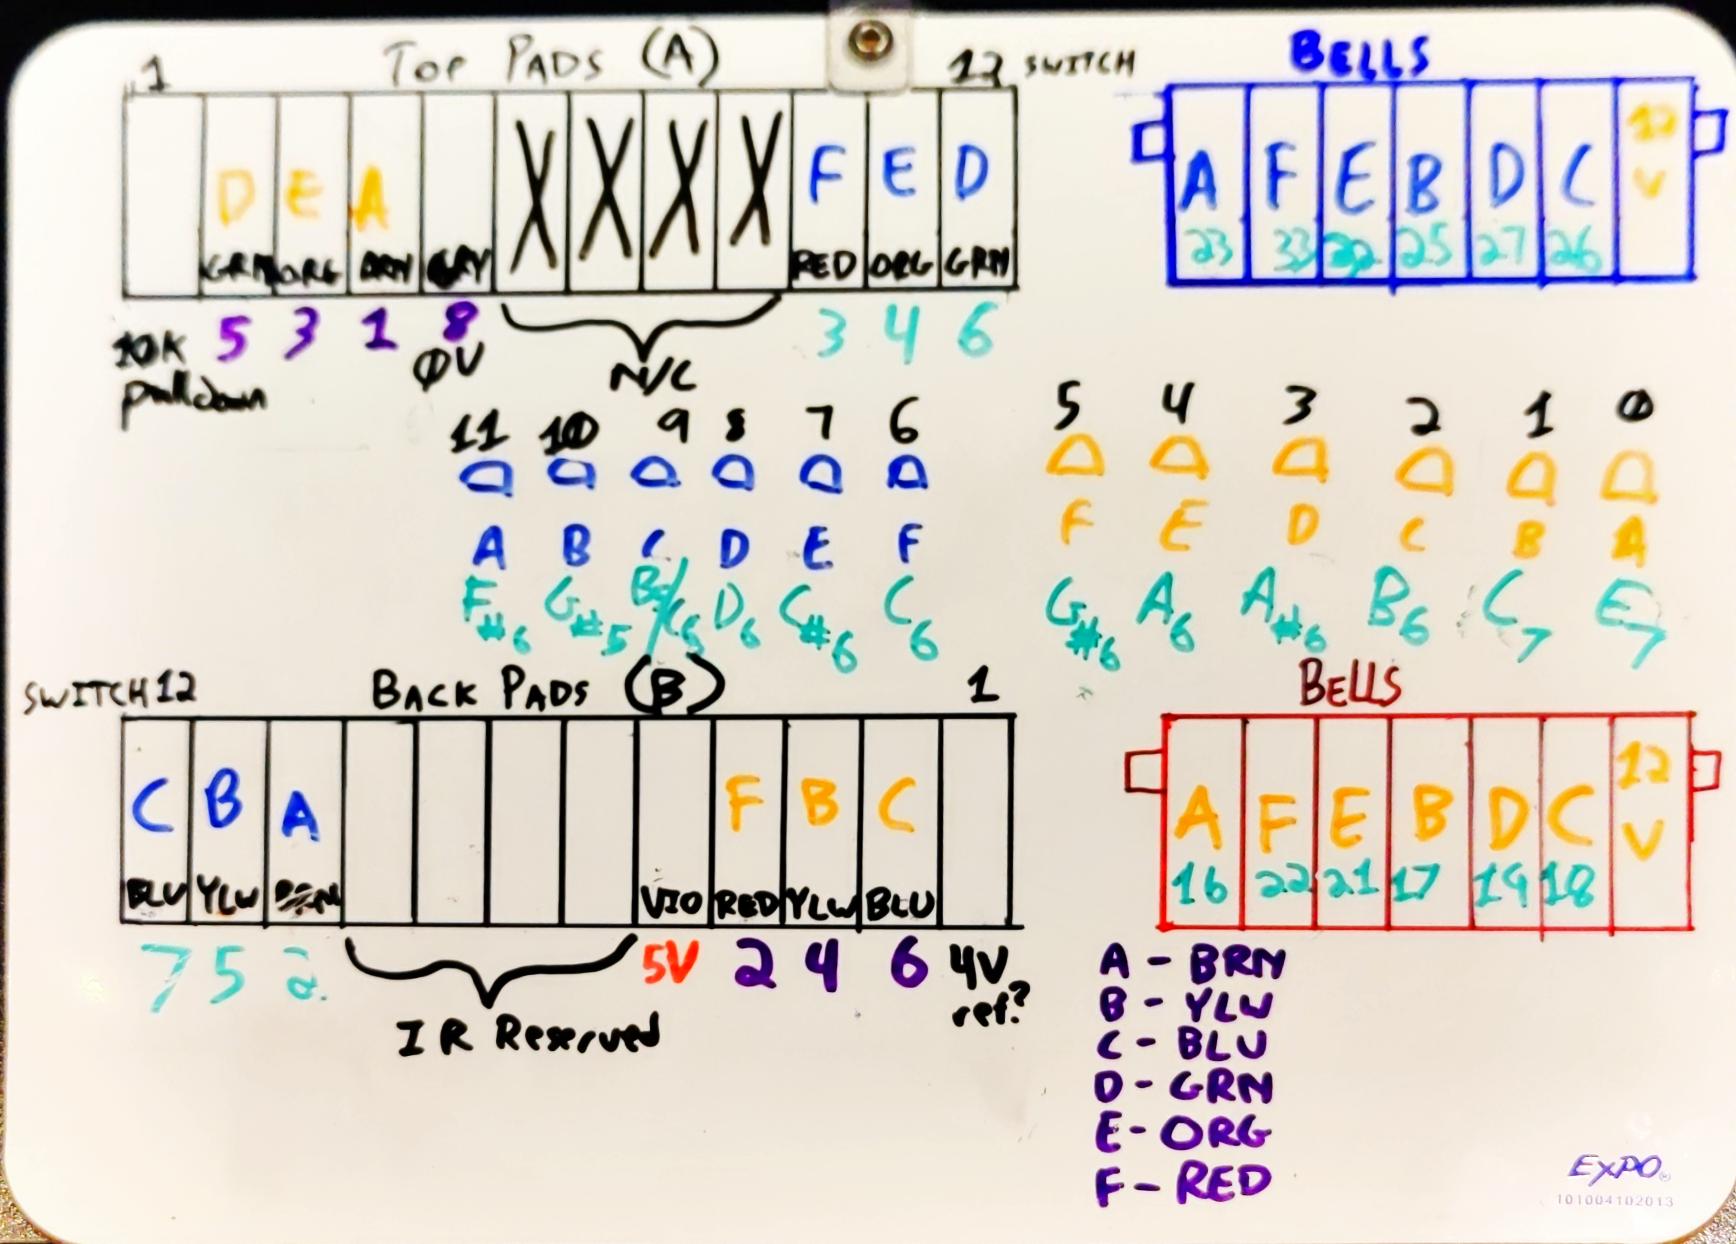 1 TOP PADS (A) 12 SWITCH
D E A X X X X F E D
GRN ORG BRN GRY RED ORG GRN
10K pulldown 5 3 1 8 3 4 6
ØV
N/C
BELLS
A F E B D C 12 V
23 33 32 25 27 26
11 10 9 8 7 6 5 4 3 2 1 Ø
A B C D E F F E D C B A
F#6 G#5 B5/C5 D6 C#6 C6 G#6 A6 A#6 B6 C7 E7
SWITCH 12 BACK PADS (B) 1
C B A F B C
BLU YLW BRN VIO RED YLW BLU
7 5 2. 5V 2 4 6 4V ref?
IR Reserved
BELLS
A F E B D C 12 V
16 22 21 17 19 18
A - BRN
B - YLW
C - BLU
D - GRN
E - ORG
F - RED
EXPO
101004102013